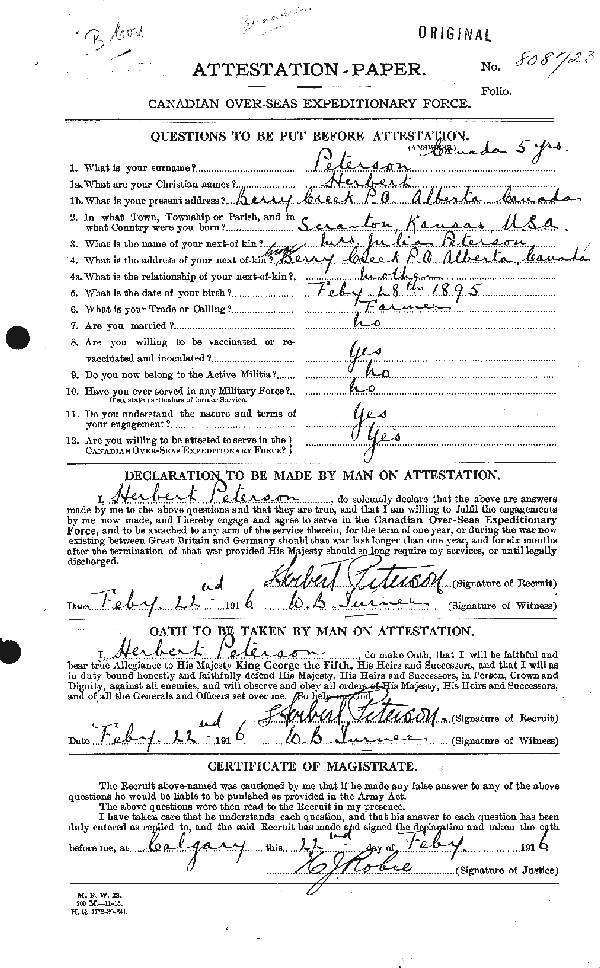 B
ORIGINAL
ATTESTATION-PAPER.
No. 808723
Folio.
CANADIAN OVER-SEAS EXPEDITIONARY FORCE.
QUESTIONS TO BE PUT BEFORE ATTESTATION.
(ANSWERS.)
Canada 5 yrs.
1. What is your surname? Peterson
1a. What are your Christian names? Herbert
1b. What is your present address? Berry Creek P.O. Alberta Canada
2. In what Town, Township or Parish, and in
what Country were you born? Scranton, Kansas U.S.A.
3. What is the name of your next-of-kin? Mrs Julia Peterson
4. What is the address of your next-of-kin? Berry Creek P.O. Alberta, Canada
4a. What is the relationship of your next-of-kin? Mother
5. What is the date of your birth? Feby 28th 1895
6. What is your Trade or Calling? Farmer
7. Are you married? No
8. Are you willing to be vaccinated or re-
vaccinated and inoculated? Yes
9. Do you now belong to the Active Militia? No
10. Have you ever served in any Military Force? No
If so, state particulars of former Service.
11. Do you understand the nature and terms of
your engagement? Yes
12. Are you willing to be attested to serve in the
CANADIAN OVER-SEAS EXPEDITIONARY FORCE? Yes
DECLARATION TO BE MADE BY MAN ON ATTESTATION.
I, Herbert Peterson, do solemnly declare that the above are answers
made by me to the above questions and that they are true, and that I am willing to fulfil the engagements
by me now made, and I hereby engage and agree to serve in the Canadian Over-Seas Expeditionary
Force, and to be attached to any arm of the service therein, for the term of one year, or during the war now
existing between Great Britain and Germany should that war last longer than one year, and for six months
after the termination of that war provided His Majesty should so long require my services, or until legally
discharged.
Herbert Peterson (Signature of Recruit)
Date Feby 22nd 1916 W B Turner (Signature of Witness)
OATH TO BE TAKEN BY MAN ON ATTESTATION.
I, Herbert Peterson, do make Oath, that I will be faithful and
bear true Allegiance to His Majesty King George the Fifth, His Heirs and Successors, and that I will as
in duty bound honestly and faithfully defend His Majesty, His Heirs and Successors, in Person, Crown and
Dignity, against all enemies, and will observe and obey all orders of His Majesty, His Heirs and Successors,
and of all the Generals and Officers set over me. So help me God.
Herbert Peterson (Signature of Recruit)
Date Feby 22nd 1916 W B Turner (Signature of Witness)
CERTIFICATE OF MAGISTRATE.
The Recruit above-named was cautioned by me that if he made any false answer to any of the above
questions he would be liable to be punished as provided in the Army Act.
The above questions were then read to the Recruit in my presence.
I have taken care that he understands each question, and that his answer to each question has been
duly entered as replied to, and the said Recruit has made and signed the declaration and taken the oath
before me, at Calgary this 22nd day of Feby 1916
H J Robie (Signature of Justice)
M. F. W. 23.